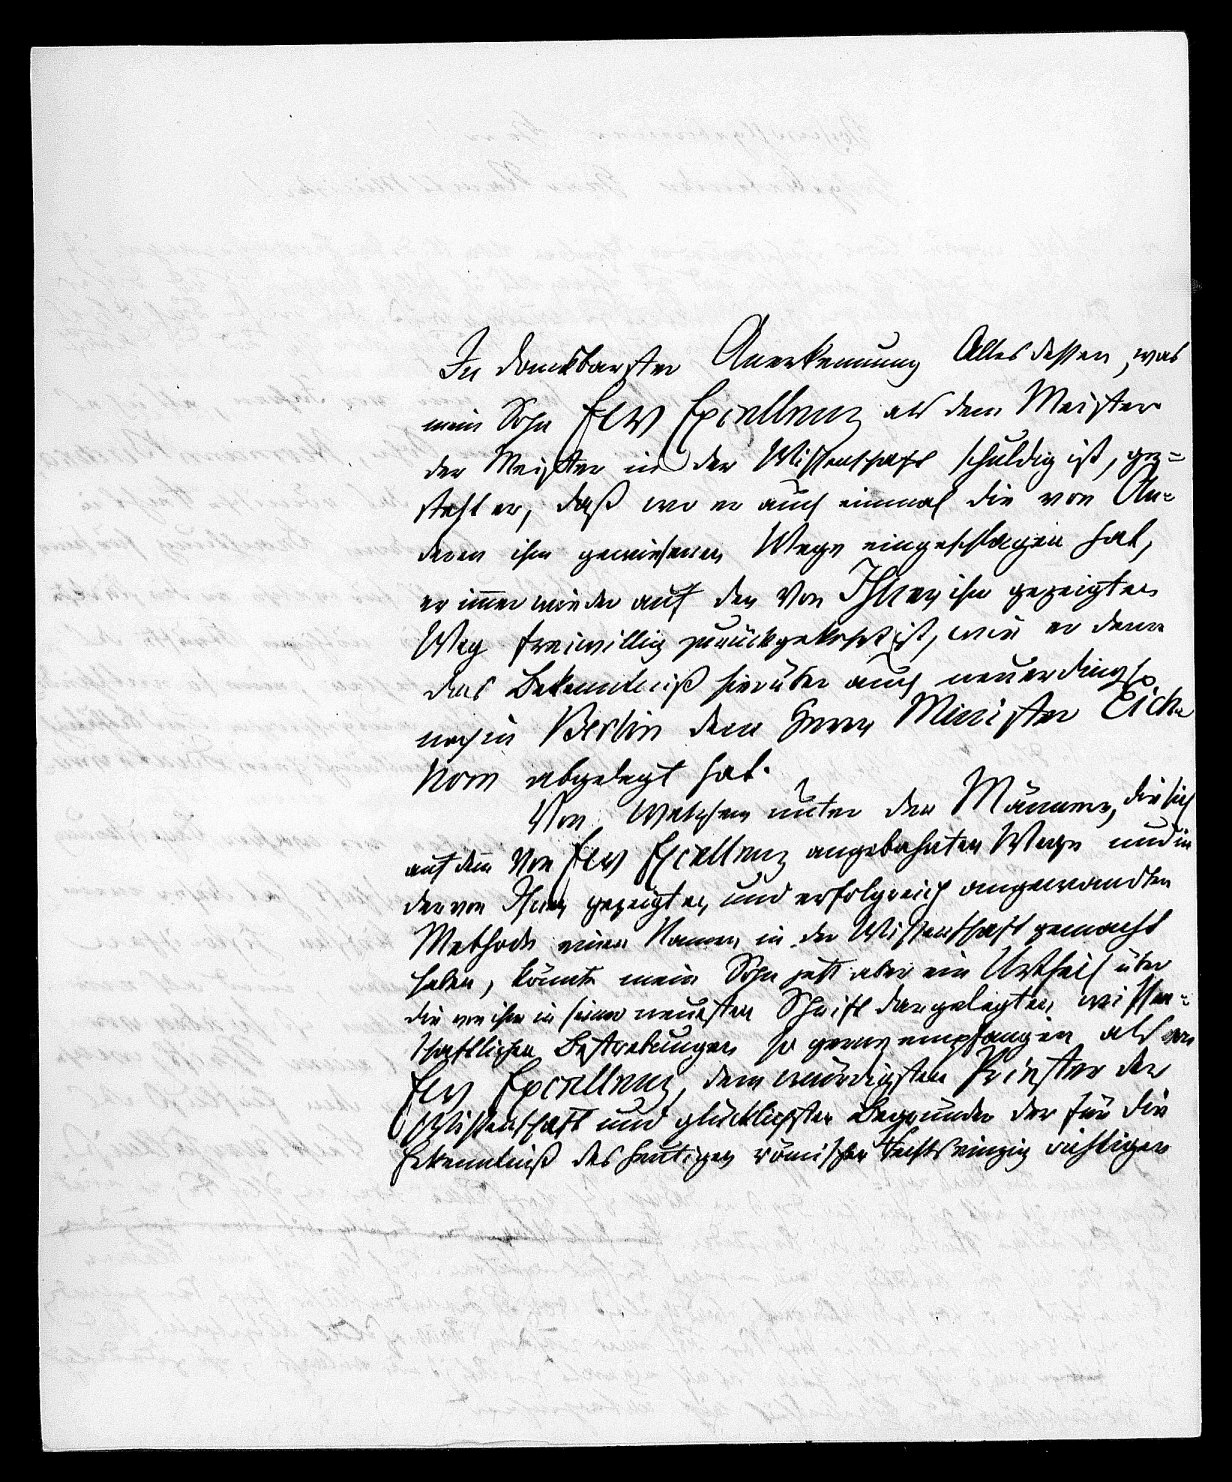 In dankbarster Anerkennung Alles dessen, was
mein Sohn Ew Excellenz als dem Meister
der Meister in der Wissenschaft schuldig ist, ge=
steht er, daß wo er auch einmal die von An=
deren ihm gewiesenen Wege eingeschlagen hat,
er immer wieder auf den von Ihnen ihm gezeigten
Weg freiwillig zurückgekehrt ist, wie er denn
das Bekenntniß hierüber auch neuerdings
noch in Berlin dem Herrn Minister Eich=
horn abgelegt hat.
Von Welchem unter den Männern, die sich
auf dem von Ew Excellenz angebahnten Wege und in
der von Ihnen gezeigten und erfolgreich angewandten
Methode einen Namen in der Wissenschaft gemacht
haben, könnte mein Sohn jetzt aber ein Urtheil über
die von ihm in seiner neuesten Schrift dargelegten wissen=
schaftlichen Bestrebungen so gerne empfangen als von
Ew Excellenz, dem würdigsten Priester der
Wissenschaft und glücklichsten Begründer der für die
Erkenntniß des heutigen römischen Rechts einzig richtigen